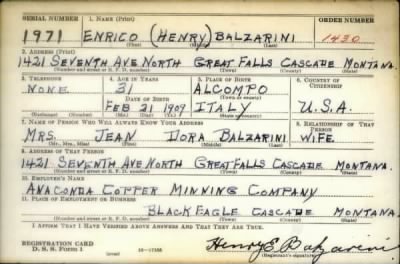 SERIAL NUMBER 1. NAME (Print) ORDER NUMBER
1971 ENRICO (HENRY) BALZARINI 1430
(First) (Middle) (Last)
2. ADDRESS (Print)
1421 SEVENTH AVE NORTH GREAT FALLS CASCADE MONTANA.
(Number and street or R. F. D. number) (Town) (County) (State)
3. TELEPHONE 4. AGE IN YEARS 5. PLACE OF BIRTH 6. COUNTRY OF CITIZENSHIP
NONE 31 ALCOMPO
DATE OF BIRTH (Town or county)
FEB 21 1909 ITALY U.S.A.
(Mo.) (Day) (Yr.) (State or country)
7. NAME OF PERSON WHO WILL ALWAYS KNOW YOUR ADDRESS 8. RELATIONSHIP OF THAT PERSON
MRS. JEAN DORA BALZARINI WIFE
(Mr., Mrs., Miss) (First) (Middle) (Last)
9. ADDRESS OF THAT PERSON
1421 SEVENTH AVE NORTH GREAT FALLS CASCADE MONTANA.
(Number and street or R. F. D. number) (Town) (County) (State)
10. EMPLOYER'S NAME
ANACONDA COPPER MINNING COMPANY
11. PLACE OF EMPLOYMENT OR BUSINESS
BLACK EAGLE CASCADE MONTANA.
(Number and street or R. F. D. number) (Town) (County) (State)
I AFFIRM THAT I HAVE VERIFIED ABOVE ANSWERS AND THAT THEY ARE TRUE.
REGISTRATION CARD
D. S. S. FORM 1 Henry E. Balzarini
(Registrant's signature)